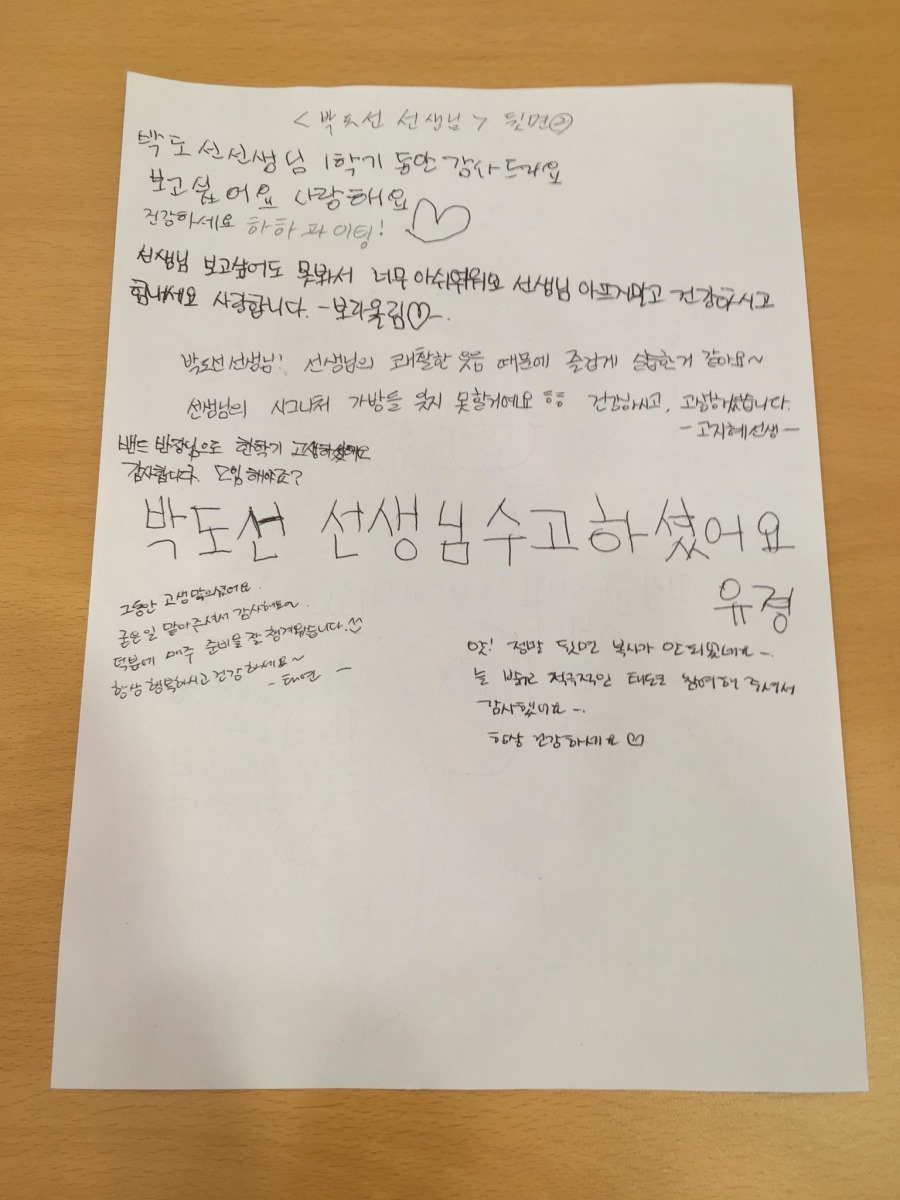 <박도선 선생님> 뒷면②
박도선선생님 1학기 동안 감사드려요
보고싶어요 사랑해요
건강하세요 하하 파이팅!
선생님 보고싶어도 못봐서 너무 아쉬워워요 선생님 아프지말고 건강하시고
힘내세요 사랑합니다. -보라올림♡-.
박도선 선생님! 선생님의 쾌활한 웃음 때문에 즐겁게 실습한거 같아요~
선생님의 시그니처 가방들 잊지 못할거예요 ㅎㅎ 건강하시고, 고생하셨습니다.
-고지혜선생-
밴드 반장님으로 한학기 고생하셨어요
감사합니다. 모임 해야죠?
박도선 선생님 수고하셨어요
유경
그동안 고생많으셨어요.
궂은일 맡아주셔서 감사해요~.
덕분에 매주 준비물 잘 챙겨왔습니다.
항상 행복하시고 건강하세요~
- 태연 -
앗! 정말 뒷면 복사가 안되었네요~.
늘 밝고 적극적인 태도로 참여해 주셔서
감사했어요~.
항상 건강하세요 ♡